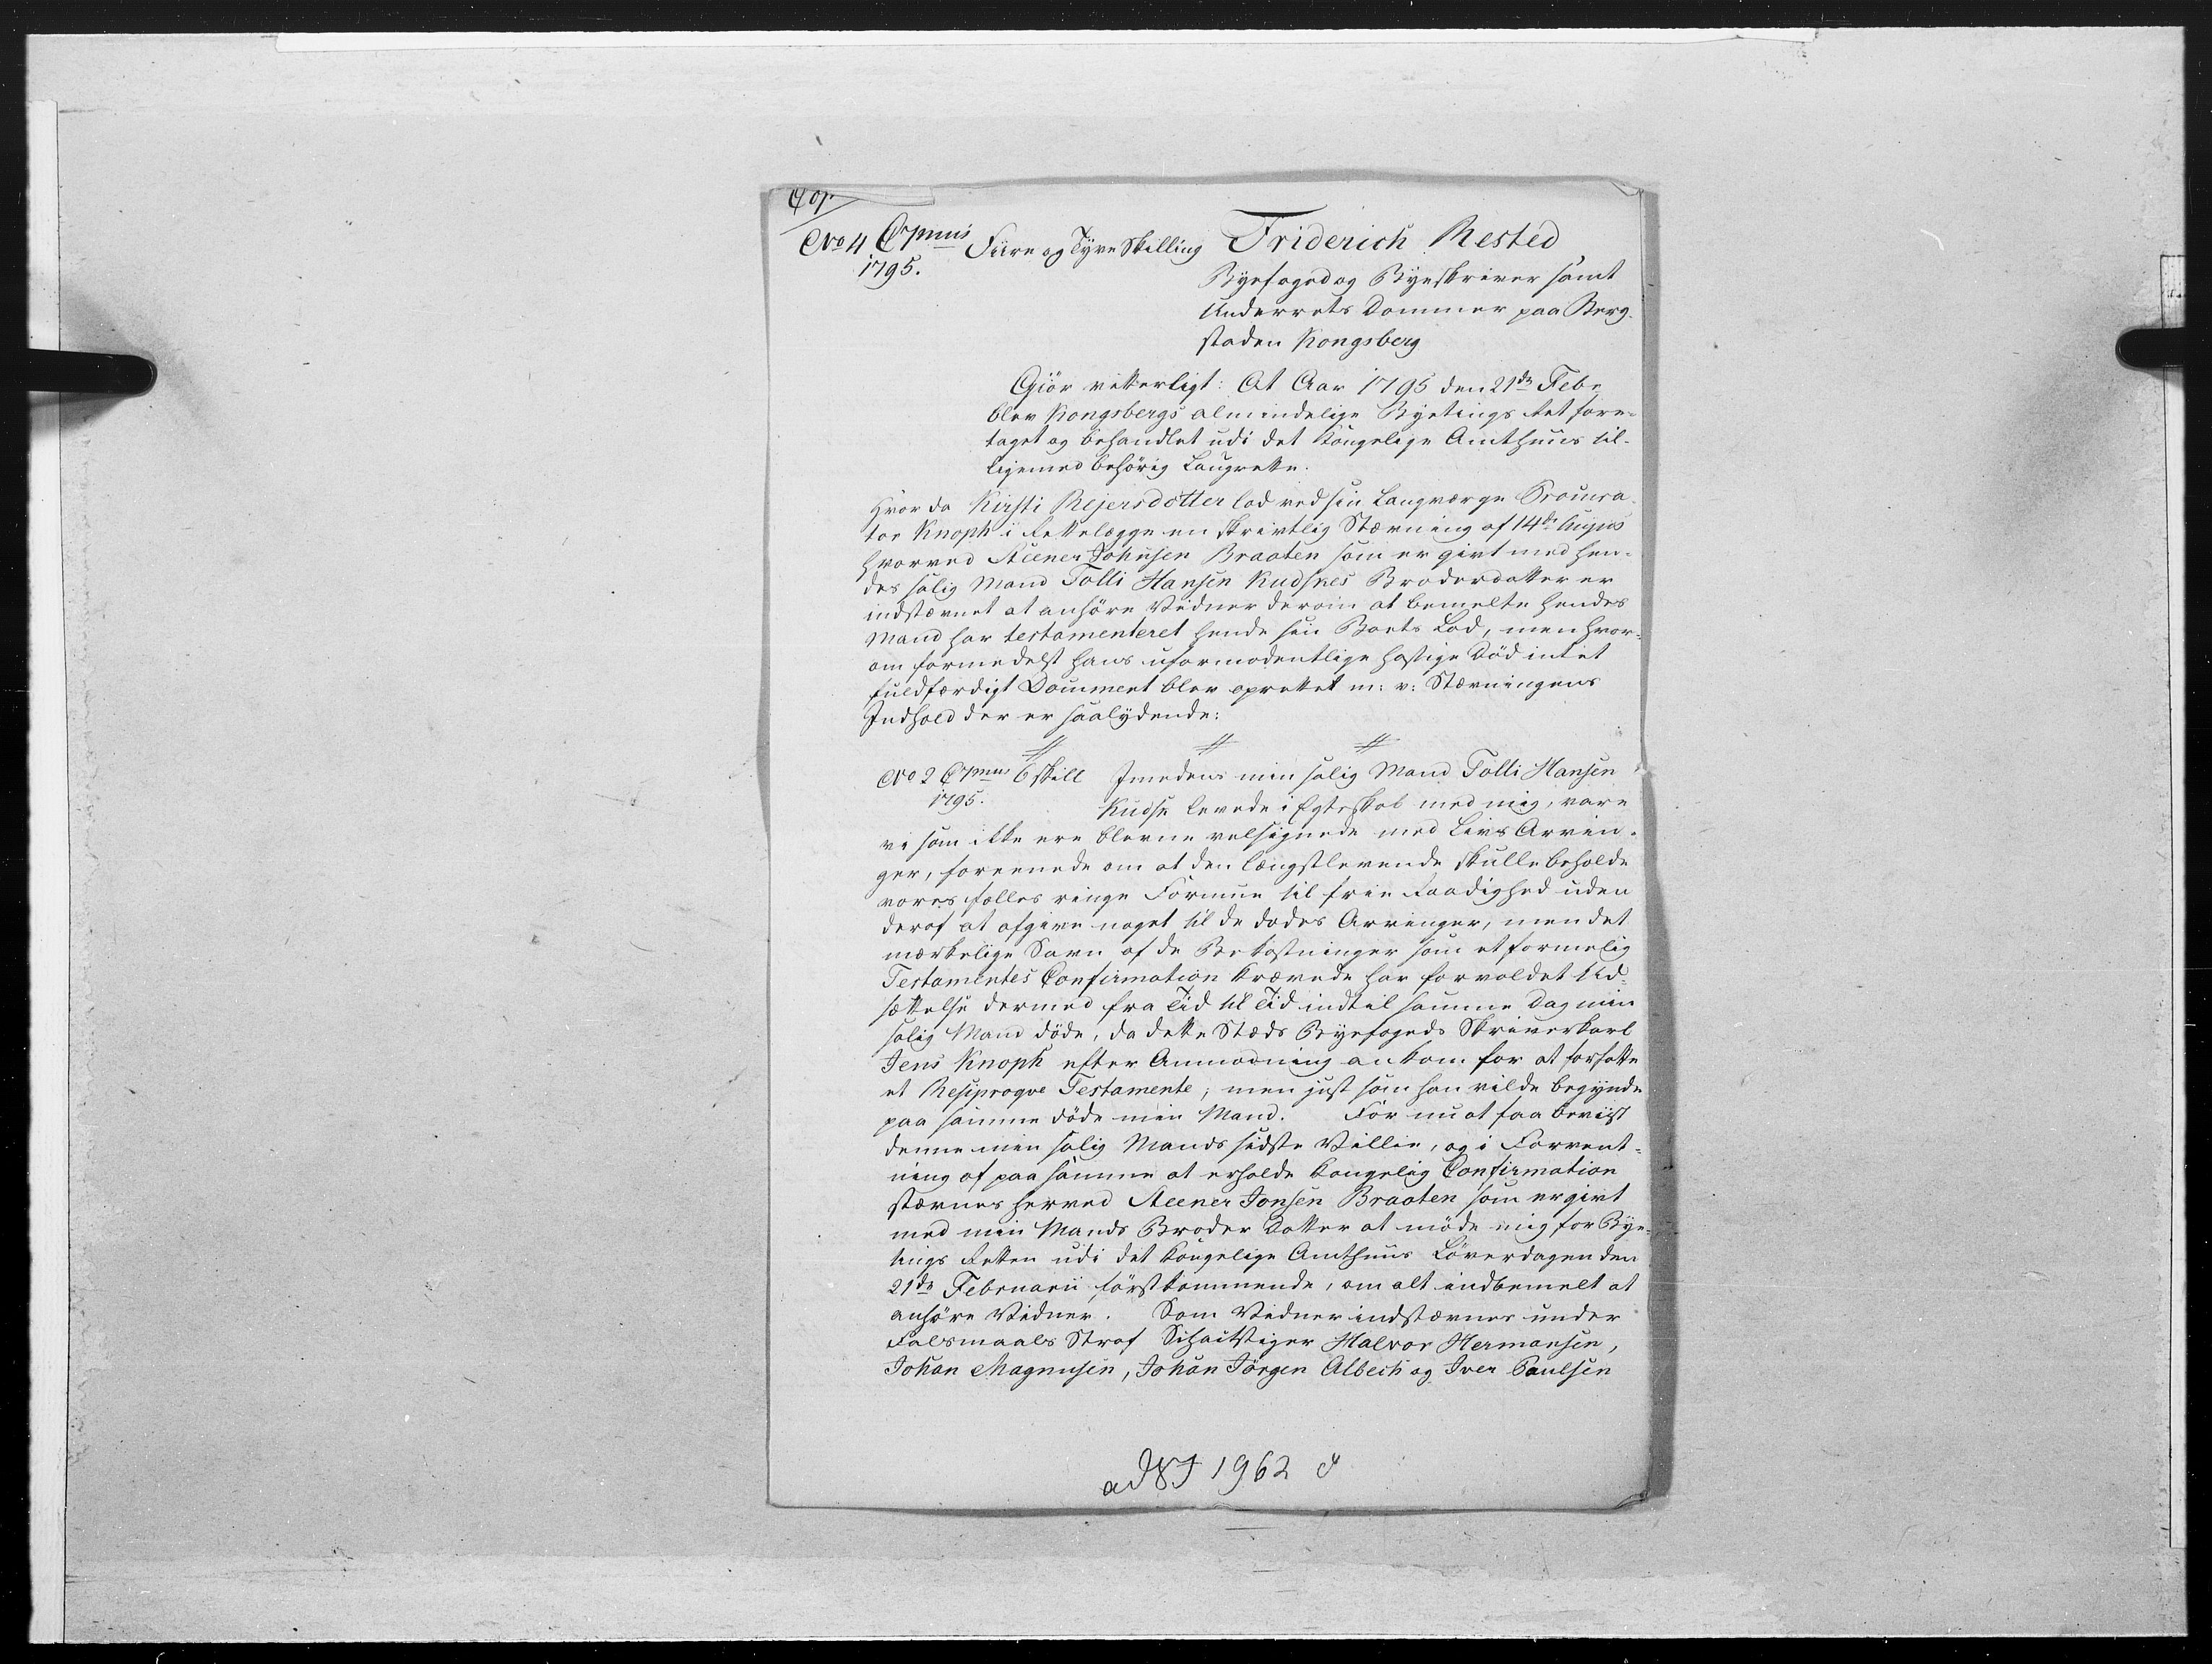 Cop.
No 4 Cpmus Fiire og Tyve Skilling Friderich Rested
1795.
Byefoged og Byeskriver samt
Underrets Dommer paa Berg-
staden Kongsberg
Giör vitterligt: At Aar 1795 den 21de Febr
blev Kongsbergs almindelige Byetings Ret fore-
taget og behandlet udi det Kongelige Amthuus til-
ligemed behörig Laugrette.
Hvor da Kirsti Rejersdotter lod ved sin Laugværge Procura-
tor Knoph i Rettelægge en skrivtlig Stævning af 14de hujus
hvorved Steener Johnsen Braaten som er givt med hen-
des salig Mand Tolli Hansen Kudskes Broderdatter er
indstævnet at anhöre Vidner derom at bemelte hendes
Mand har testamenteret hende sin Boets Lod, men hvor-
om formedelst hans uformodentlige hastige Död intet
fuldfærdigt Document blev oprettet m: v: Stævningens
Indhold der er saalydende:
No 2 Cpmus 6 skill Imedens min salig Mand Tolli Hansen
1795.
Kudsk levede i Egteskab med mig, vare
vi som ikke ere blevne velsignede med Livs Arvin-
ger, foreenede om at den længstlevende skulle beholde
vores fælles ringe Formue til frie Raadighed uden
deraf at afgive noget til de dödes Arvinger, men det
mærkelige Savn af de Bekostninger som et formelig
Testamentes Confirmation krævede har forvoldet Ud-
sættelse dermed fra Tid til Tid indtil samme Dag min
salig Mand döde, da dette Stæds Byefogeds Skriverkarl
Jens Knoph efter Anmodning ankom for at forfatte
et Resiproqve Testamente; men just som han vilde begynde
paa samme döde min Mand. For nu at faa beviist
denne min salig Mands sidste Villie, og i Forvent-
ning af paa samme at erholde Kongelig Confirmation
stævnes herved Steener Jonsen Braaten som er givt
med min Mands Broder Datter at möde mig for Bye-
tings Retten udi det Kongelige Amthuus Löverdagen den
21de Februarii förstkommende, om alt indbemelt at
anhöre Vidner. Som Vidner indstævnes under
Falsmaals Straf Schaitstiger Halvor Hermansen,
Johan Magnusen, Johan Jörgen Albech og Iver Paulsen
ad 1962